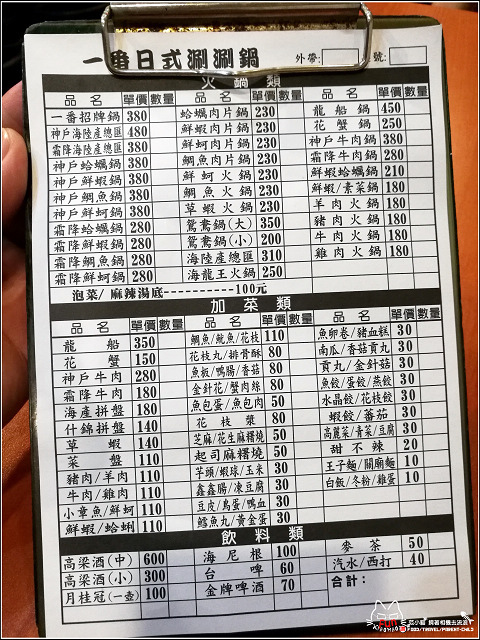 一番日式涮涮鍋
外帶: 號:
火鍋類
品名 單價 數量 品名 單價 數量 品名 單價 數量
一番招牌鍋 380 蛤蠣肉片鍋 230 龍船鍋 450
神戶海陸產總匯 480 鮮蝦肉片鍋 230 花蟹鍋 250
霜降海陸產總匯 380 鮮蚵肉片鍋 230 神戶牛肉鍋 380
神戶蛤蠣鍋 380 鯛魚肉片鍋 230 霜降牛肉鍋 280
神戶鮮蝦鍋 380 鮮蚵火鍋 230 蛤蠣/鮮蚵蝦鍋 210
神戶鯛魚鍋 380 鯛魚火鍋 230 鮮蝦/素菜鍋 180
神戶鮮蚵鍋 380 草蝦火鍋 230 羊肉火鍋 180
霜降蛤蠣鍋 280 鴛鴦鍋(大) 350 豬肉火鍋 180
霜降鮮蝦鍋 280 鴛鴦鍋(小) 200 牛肉火鍋 180
霜降鯛魚鍋 280 海陸產總匯 310 雞肉火鍋 180
霜降鮮蚵鍋 280 海龍王火鍋 250
泡菜/ 麻辣湯底-----------100元
加菜類
品名 單價 數量 品名 單價 數量 品名 單價 數量
龍船 350 鯛魚/魷魚/花枝 110 魚卵卷/豬血糕 30
花蟹 150 花枝丸/排骨酥 80 南瓜/香菇貢丸 30
神戶牛肉 280 魚板/鴨腸/香菇 80 貢丸/金針菇 30
霜降牛肉 180 金針花/蟹肉絲 80 魚餃/蛋餃/燕餃 30
海產拼盤 180 魚包蛋/魚包肉 50 水晶餃/花枝餃 30
什錦拼盤 140 花枝漿 80 蝦餃/蕃茄 30
草蝦 140 芝麻/花生麻糬燒 50 高麗菜/青菜/豆腐 30
菜盤 110 起司麻糬燒 50 甜不辣 20
豬肉/羊肉 110 芋頭/蝦球/玉米 30 王子麵/關廟麵 10
牛肉/雞肉 110 鑫鑫腸/凍豆腐 30 白飯/冬粉/雞蛋 10
小章魚/鮮蚵 110 豆皮/鳥蛋/鴨血 30
鮮蝦/蛤蜊 110 鱈魚丸/黃金蛋 30
飲料類
高梁酒(中) 600 海尼根 100 麥茶 50
高梁酒(小) 300 台啤 60 汽水/西打 40
月桂冠(一壺) 100 金牌啤酒 70 合計: